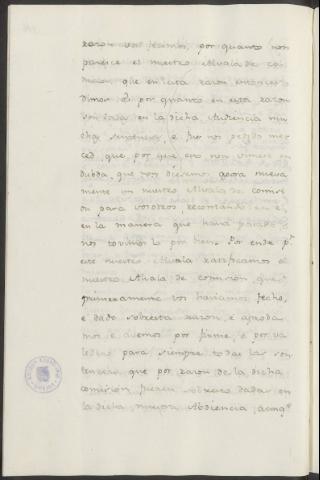 razon vos fecimos, por quanto non
paresce el nuestro Alvala de co-
mision que en esta razon entonces
dimos, é por quanto en esta razon
son dada en la dicha Audiencia mu
chas sentencias, e fue nos pedido mer
ced, que, por que esto non viniese en
dubda, que nos diesemos agora nueva
mente un nuestro Alvala de comisi
on para vosotros recontando en el
en la manera que havia pasado é
nos tovimos lo por bien. Por ende pr.
este nuestro Alvala ratificamos el
nuestro Alvala de comision, que
primeramente vos haviamos fecho,
e dado sobre esta razon, e aproba
mos e avemos por firme, e por va
ledero para siempre todas las sen
tencias que por razon de la dicha
comision fueron dadas en
la dicha nuestra Abdiencia, aunq.e